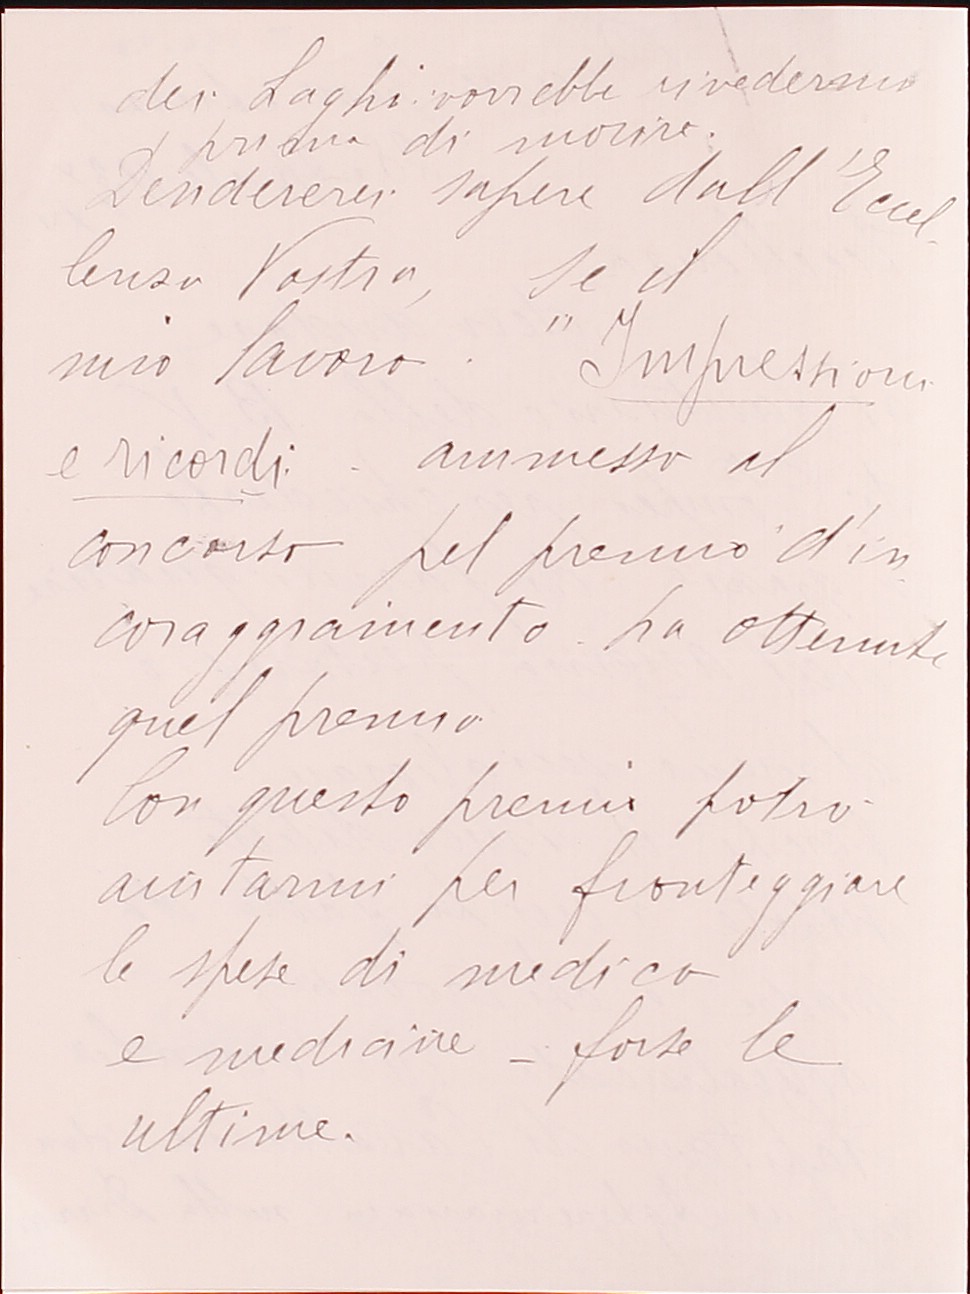 dei Laghi vorrebbe rivedermi
prima di morire.
Desidererei sapere dall'Eccel-
lenza Vostra, se il
mio lavoro. "Impressioni
e ricordi. - ammesso al
concorso pel premio d'in
coraggiamento ha ottenuto
quel premio
Con questo premio potrò
aiutarmi per fronteggiare
le spese di medico
e medicine - forse le
ultime.